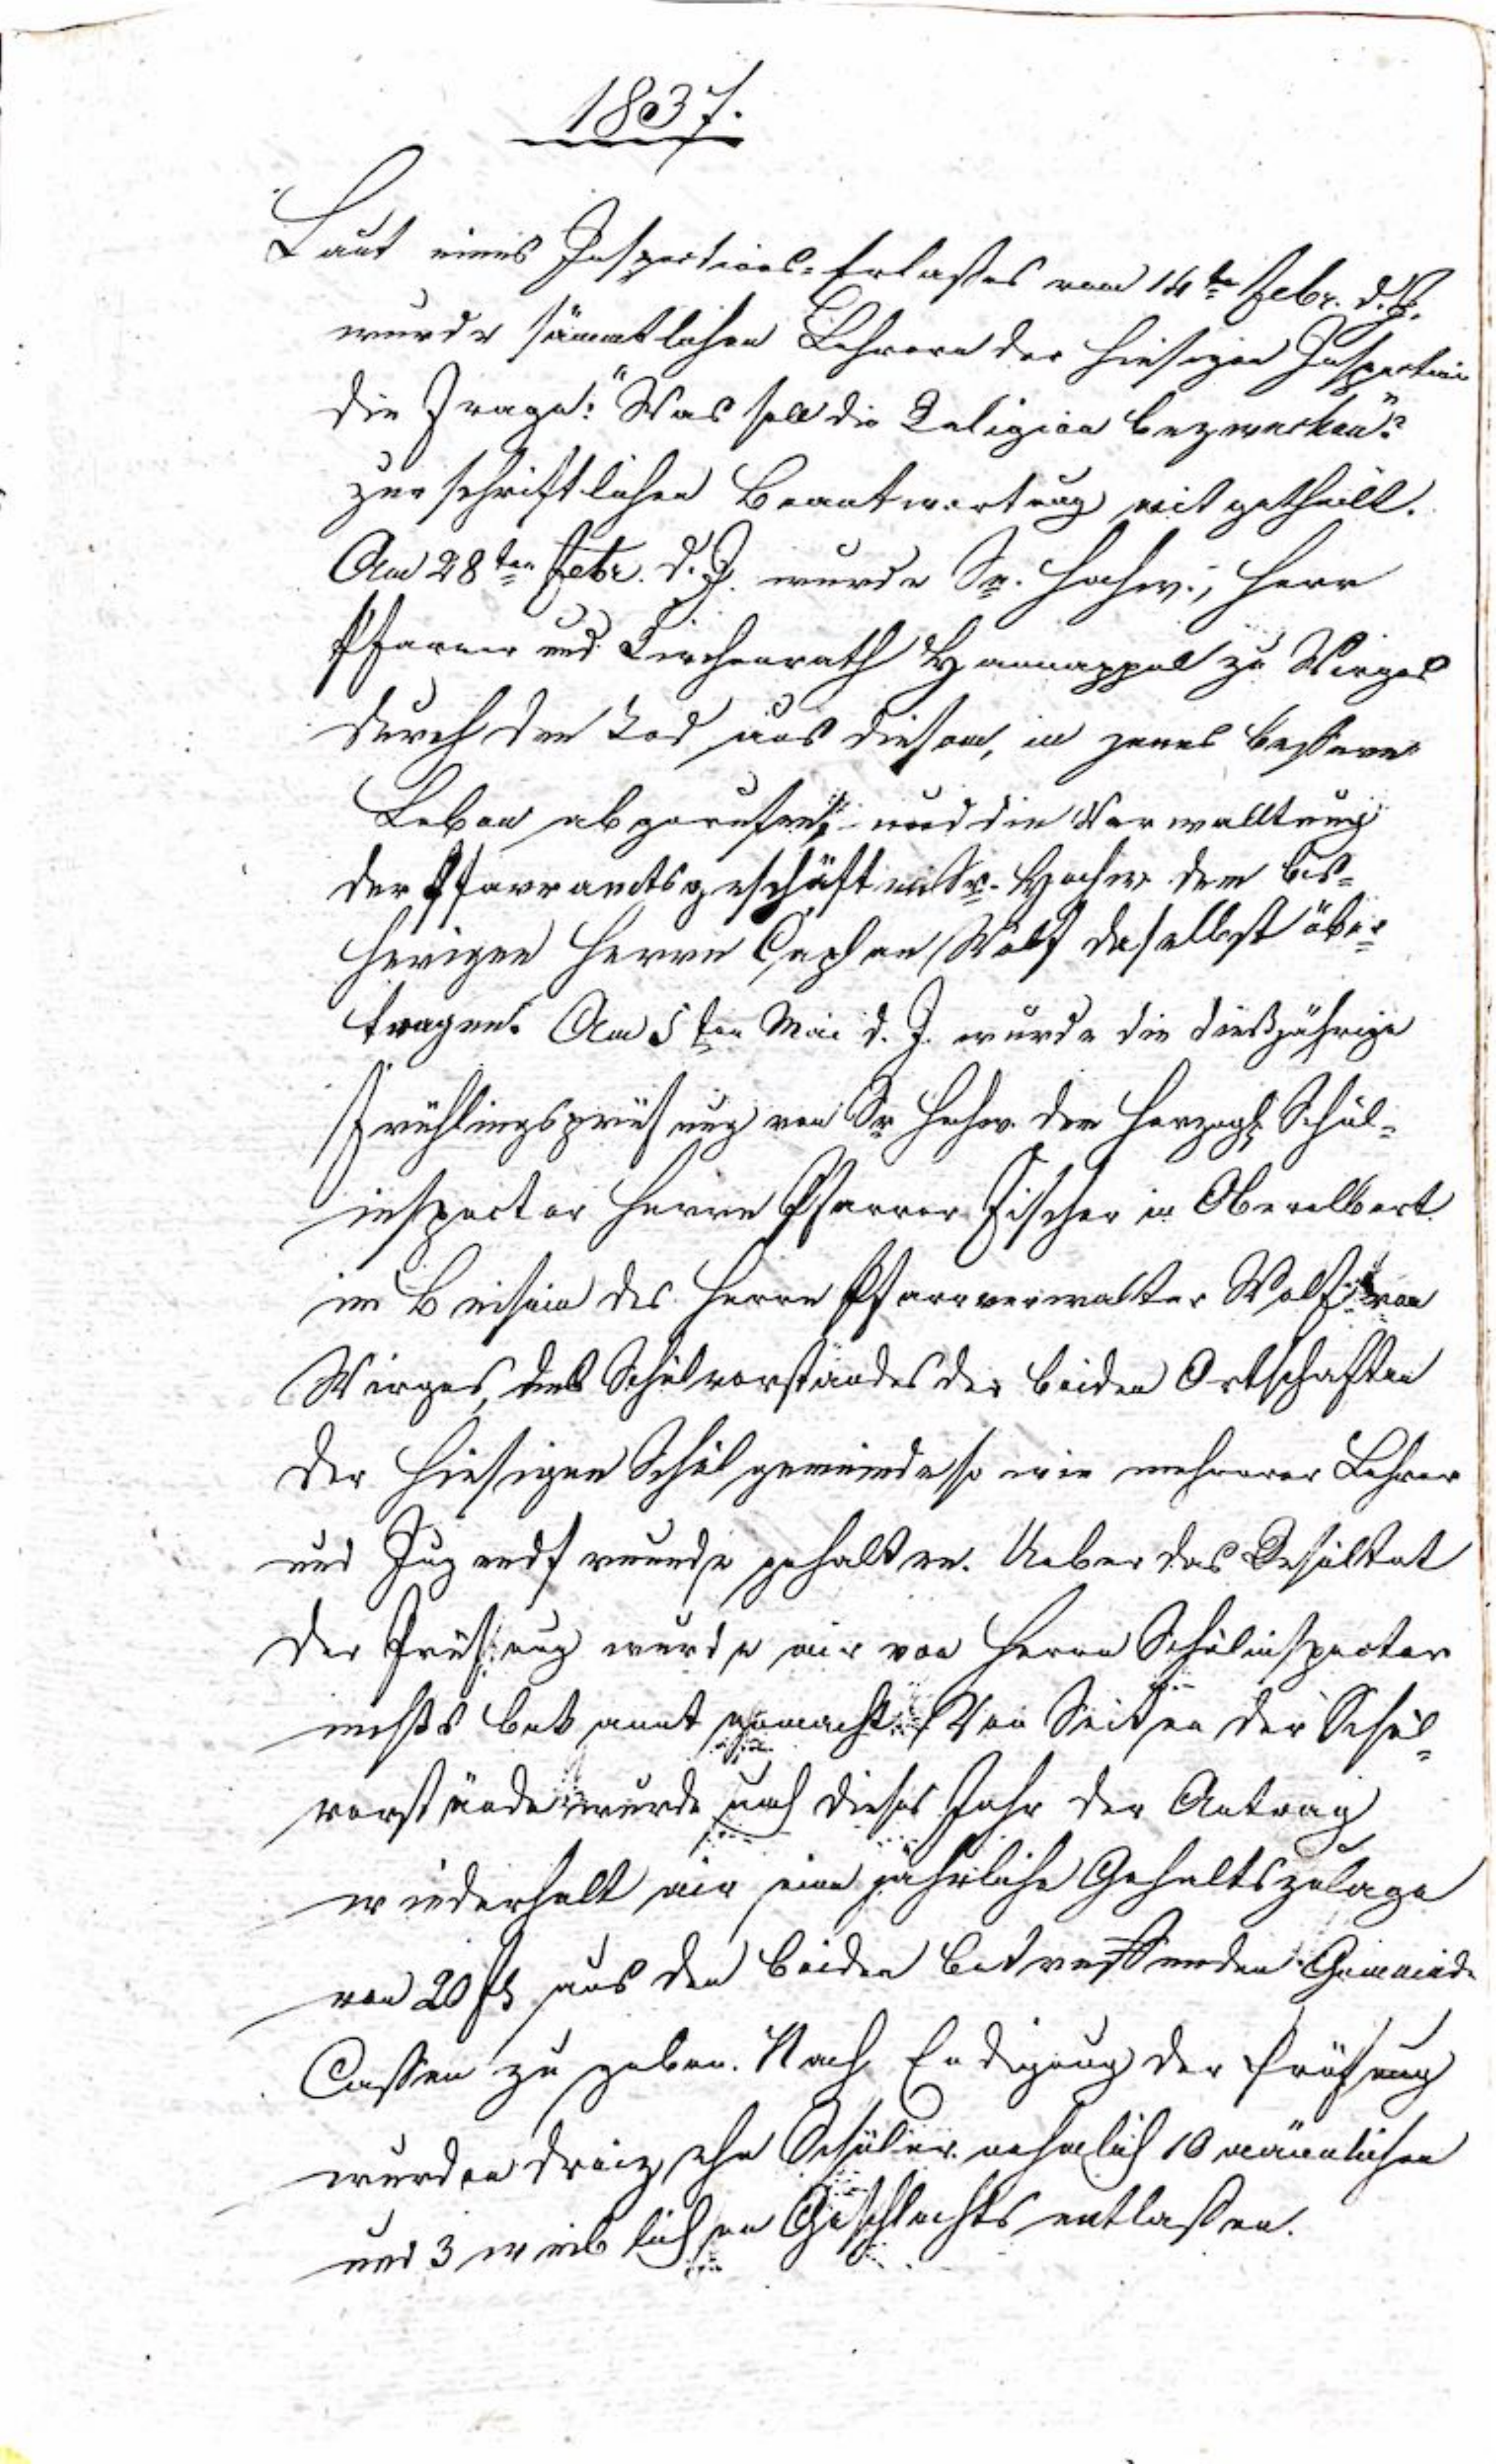 1837.
Laut eines Inspections-Erlasses vom 14ten Febr. d. J.
wurde sämmtlichen Lehrern der hiesigen Inspection
die Frage: "Was soll die Religion bezwecken"?
zur schriftlichen Beantwortung mitgetheilt.
Am 28ten Febr. d. J. wurde Sr. Hochw., Herr
Pfarrer und Kirchenrath Hannappel zu Wirges
durch den Tod aus diesem, in jenes bessere
Leben abgerufen, und die Verwalltung
der Pfarramtsgeschäften Sr. Hochw. dem bis-
herigen Herrn Caplan Wolf daselbst über-
tragen. Am 5ten Mai d. J. wurde die dießjährige
Frühlingsprüfung von Sr Hochw. dem Herzogl. Schul-
inspector Herrn Pfarrer Fischer in Oberelbert
im Beisein des Herrn Pfarrverwalter Wolf von
Wirges, des Schulvorstandes der beiden Ortschaften
der hiesigen Schulgemeinde so wie mehrerer Lehrer
und Jugendfreunde gehalten. Ueber das Resultat
der Prüfung wurde mir von Herrn Schulinspector
nichts bekannt gemacht. Von Seiten der Schul-
vorstände wurde auch dieses Jahr der Antrag
wiederholt mir eine jährliche Gehaltszulage
von 20 fl aus den beiden betreffenden Gemeinde
Cassen zu geben. Nach Endigung der Prüfung
wurden dreizehn Schüler nehmlich 10 männlichen
und 3 weiblichen Geschlechts entlassen.